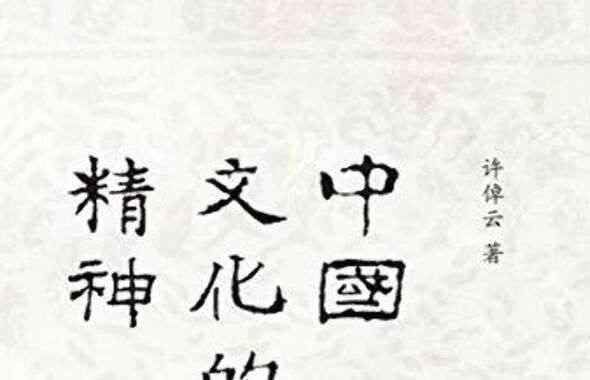 许倬云 著
中國
文化的
精神